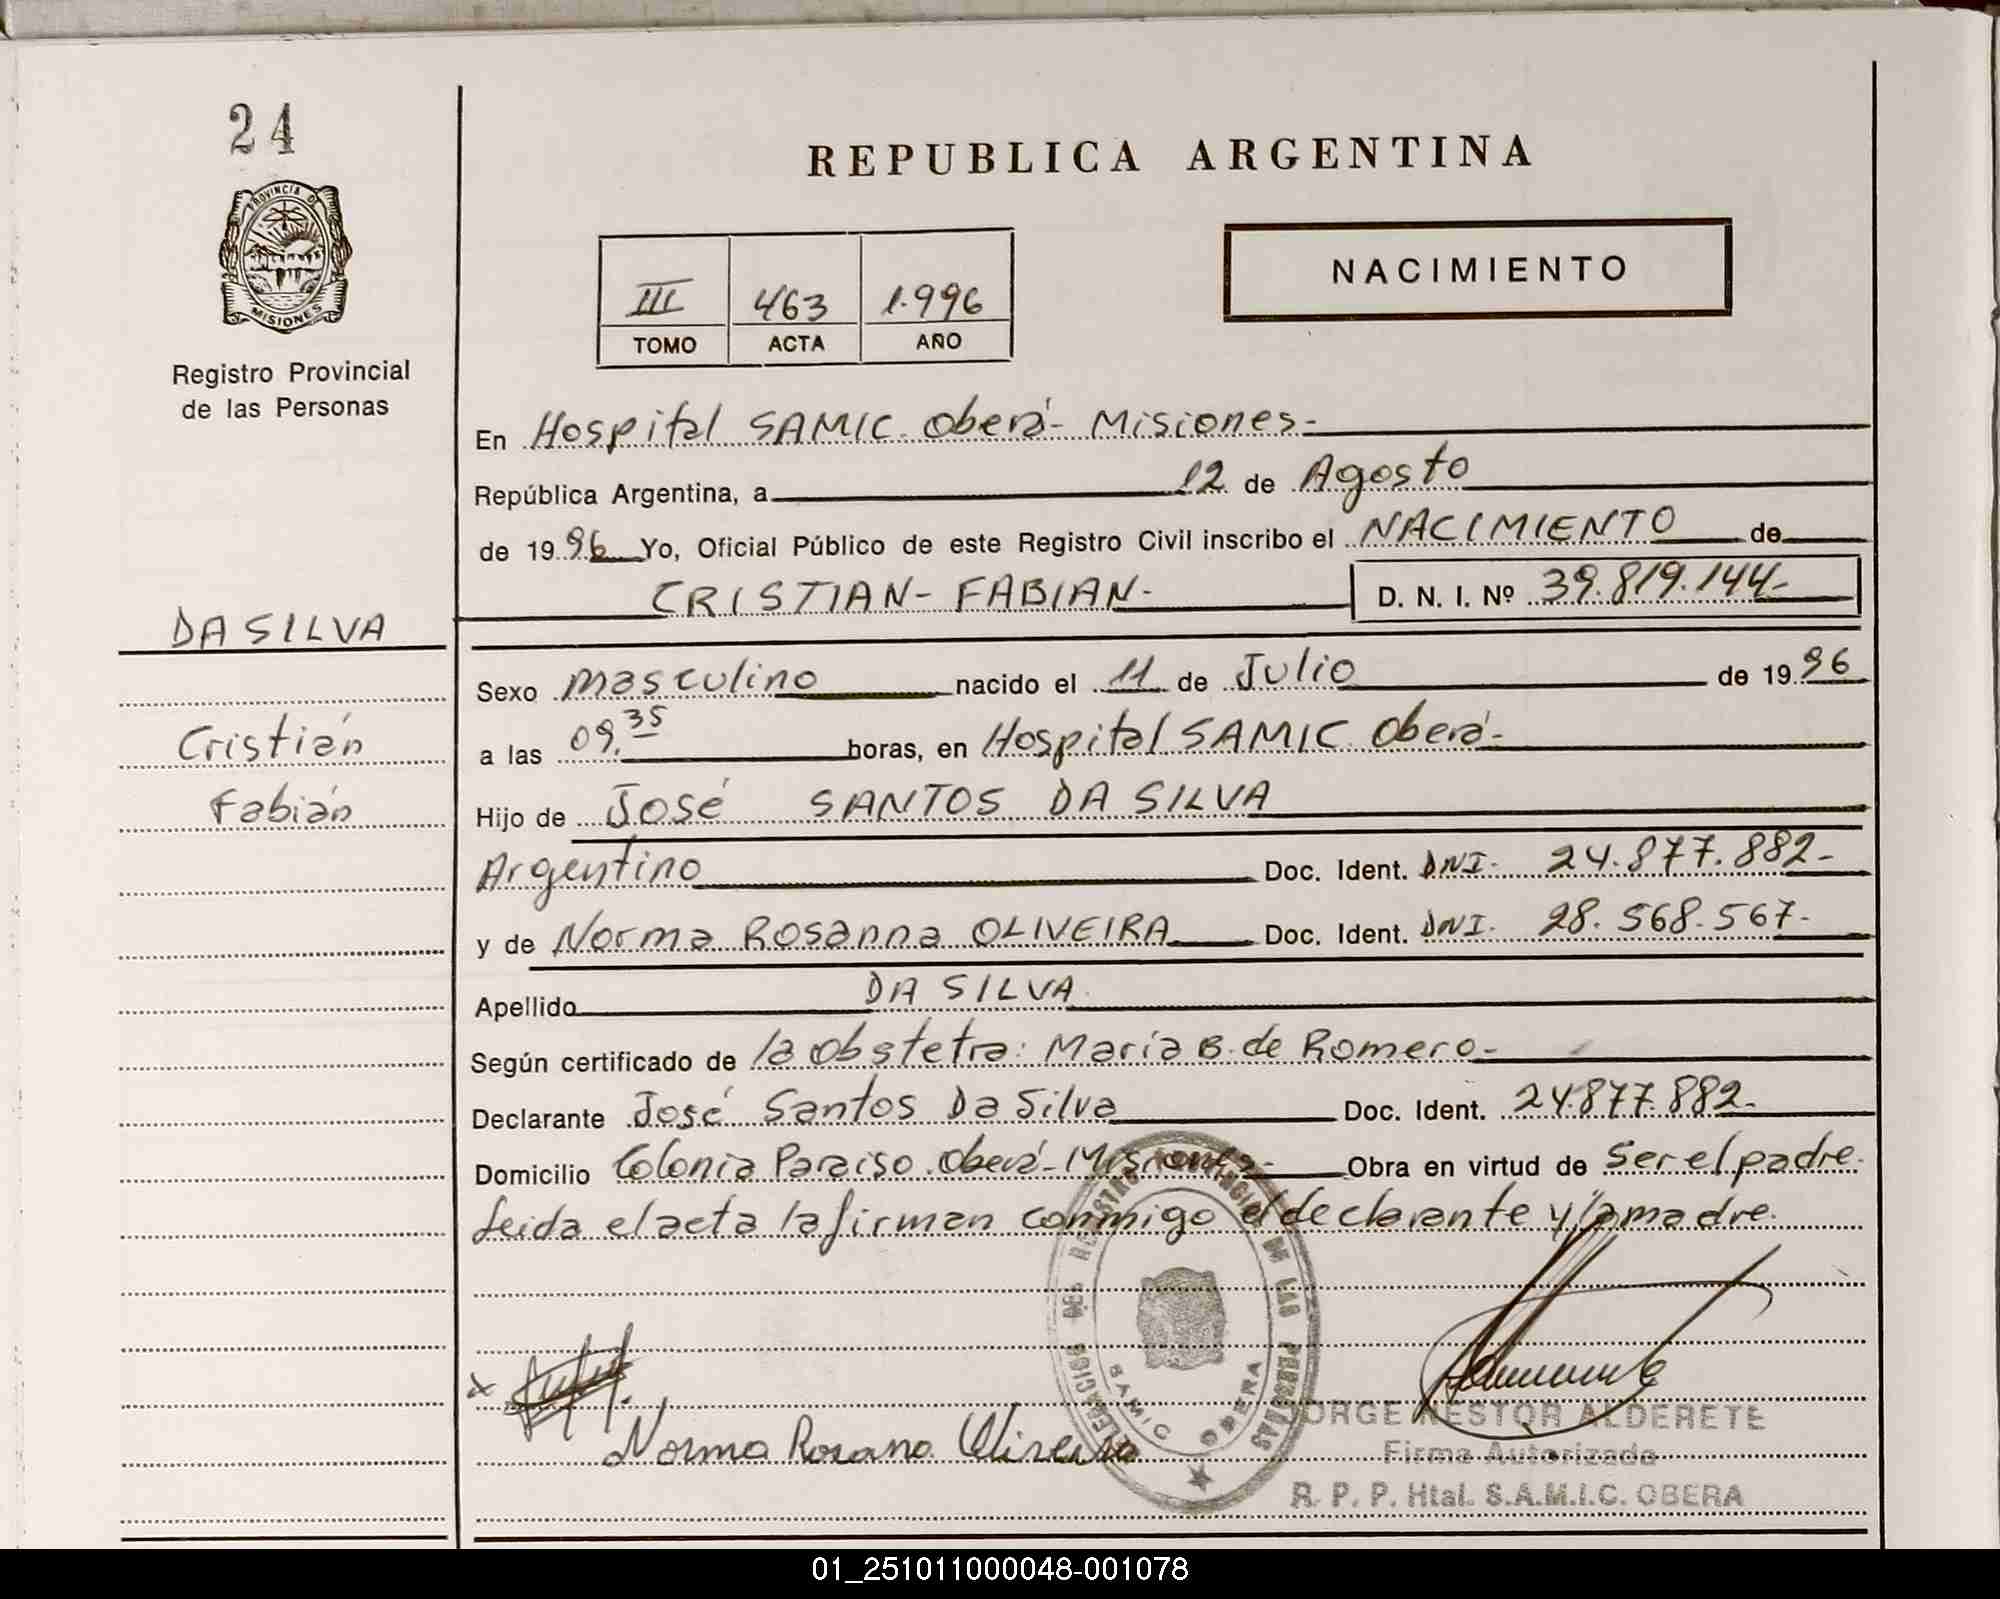 24
PROVINCIA DE
MISIONES
Registro Provincial
de las Personas
DA SILVA
Cristián
Fabián
REPUBLICA ARGENTINA
NACIMIENTO
III 463 1.996
TOMO ACTA AÑO
En Hospital SAMIC. Oberá- Misiones-
República Argentina, a 12 de Agosto
de 1996 Yo, Oficial Público de este Registro Civil inscribo el NACIMIENTO de
CRISTIAN- FABIAN- D. N. I. Nº 39.819.144-
Sexo masculino nacido el 11 de Julio de 1996
a las 09.35 horas, en Hospital SAMIC. Oberá-
Hijo de José SANTOS DA SILVA
Argentino Doc. Ident. DNI- 24.877.882-
y de Norma Rosanna OLIVEIRA Doc. Ident. DNI. 28.568.567-
Apellido DA SILVA
Según certificado de la obstetra: María B. de Romero-
Declarante José Santos Da Silva Doc. Ident. 24.877.882-
Domicilio Colonia Paraiso. Oberá-Misiones- Obra en virtud de Ser el padre.
Leida el acta la firman conmigo el declarante y la madre.
Norma Rosana Oliveira
SAMIC OBERA
JORGE NESTOR ALDERETE
Firma Autorizada
R. P. P. Htal. S.A.M.I.C. OBERA
01_251011000048-001078